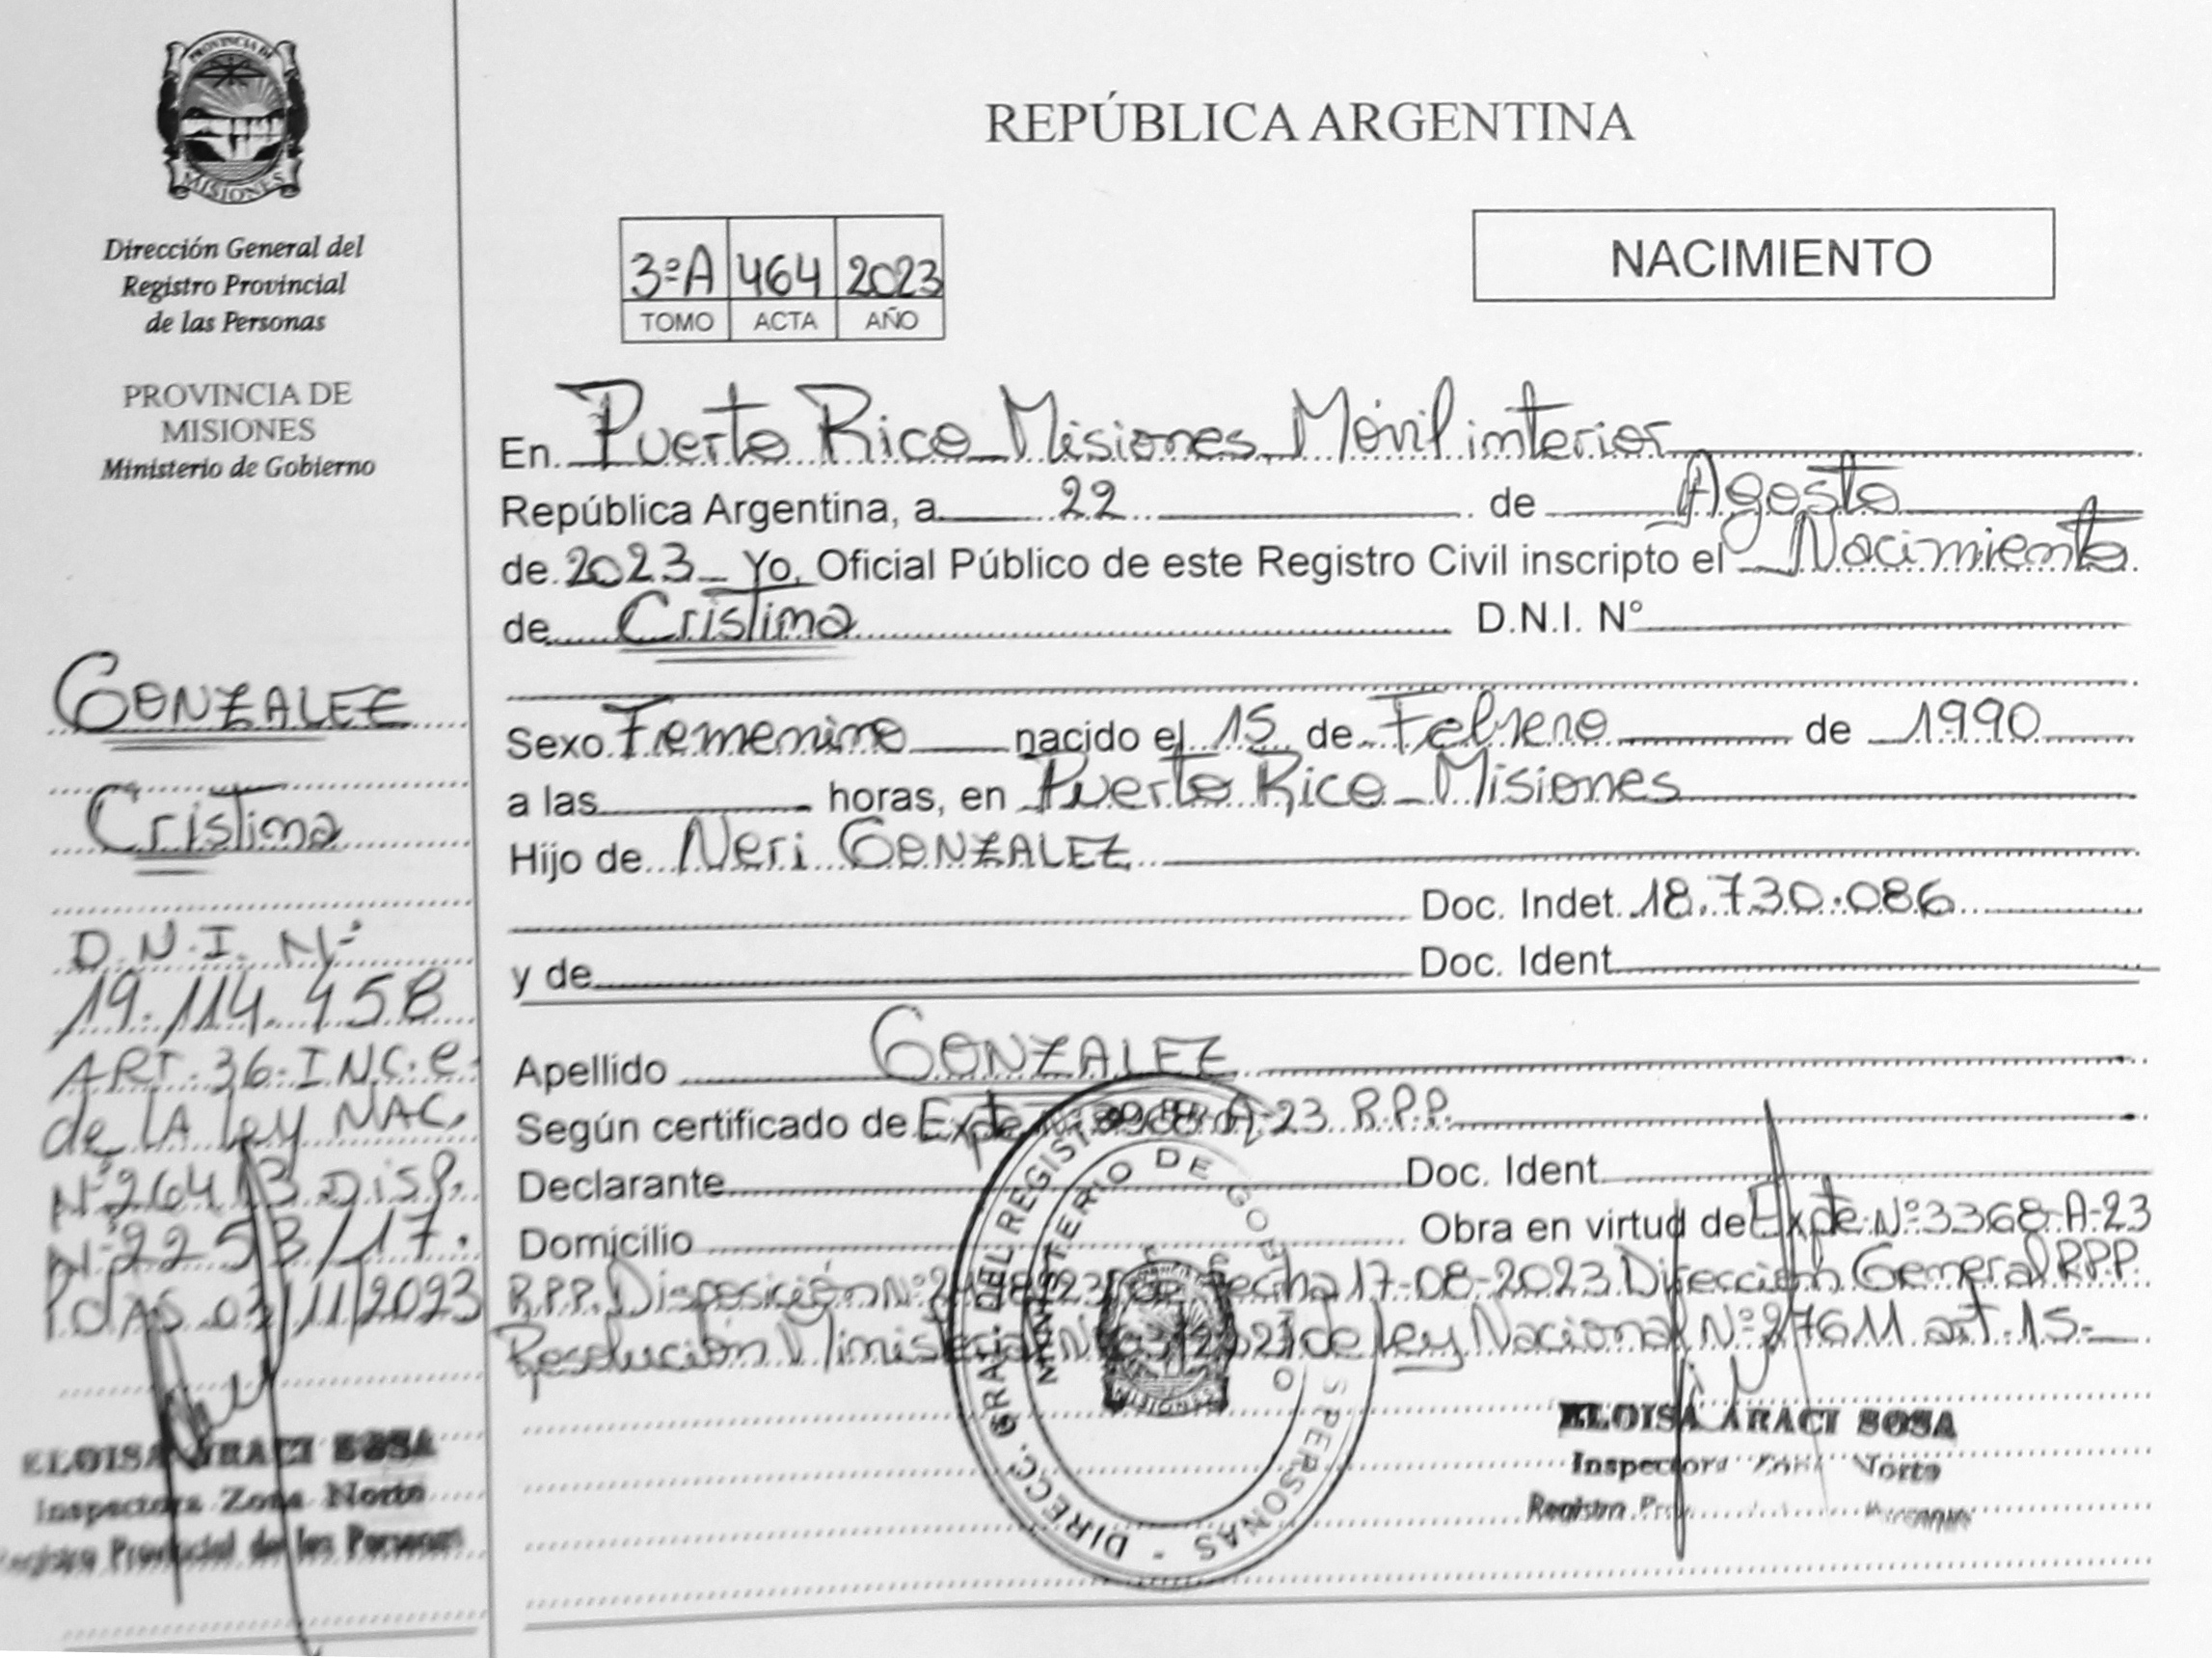 PROVINCIA DE
MISIONES
Dirección General del
Registro Provincial
de las Personas
PROVINCIA DE
MISIONES
Ministerio de Gobierno
GONZALEZ
Cristina
D.N.I. Nº
19.114.458
ART. 36. INC. e
de LA Ley NAC.
Nº 26413 Disp.
Nº 2253/17.
Pdas 03/11/2023
ELOISA ARACI SOSA
Inspectora Zona Norte
Registro Provincial de las Personas
REPÚBLICA ARGENTINA
3ºA 464 2023
TOMO ACTA AÑO
NACIMIENTO
En Puerto Rico_Misiones_Móvil interior
República Argentina, a 22 de Agosto
de 2023 Yo, Oficial Público de este Registro Civil inscripto el Nacimiento
de Cristina D.N.I. N°
Sexo Femenino nacido el 15 de Febrero de 1990
a las horas, en Puerto Rico_Misiones
Hijo de Neri GONZALEZ
Doc. Indet. 18.730.086
y de Doc. Ident.
Apellido GONZALEZ
Según certificado de Expte A-23 R.P.P.
Declarante Doc. Ident.
Domicilio Obra en virtud de Expte Nº 3368-A-23
R.P.P. Disposición fecha 17-08-2023 Dirección General RPP
Resolución Ministerial de ley Nacional Nº 27611 art. 15-
DIRECC. GRAL. DEL REGIST PERSONAS -
MINISTERIO DE GOBIERNO
MISIONES
ELOISA ARACI SOSA
Inspectora Zona Norte
Registro